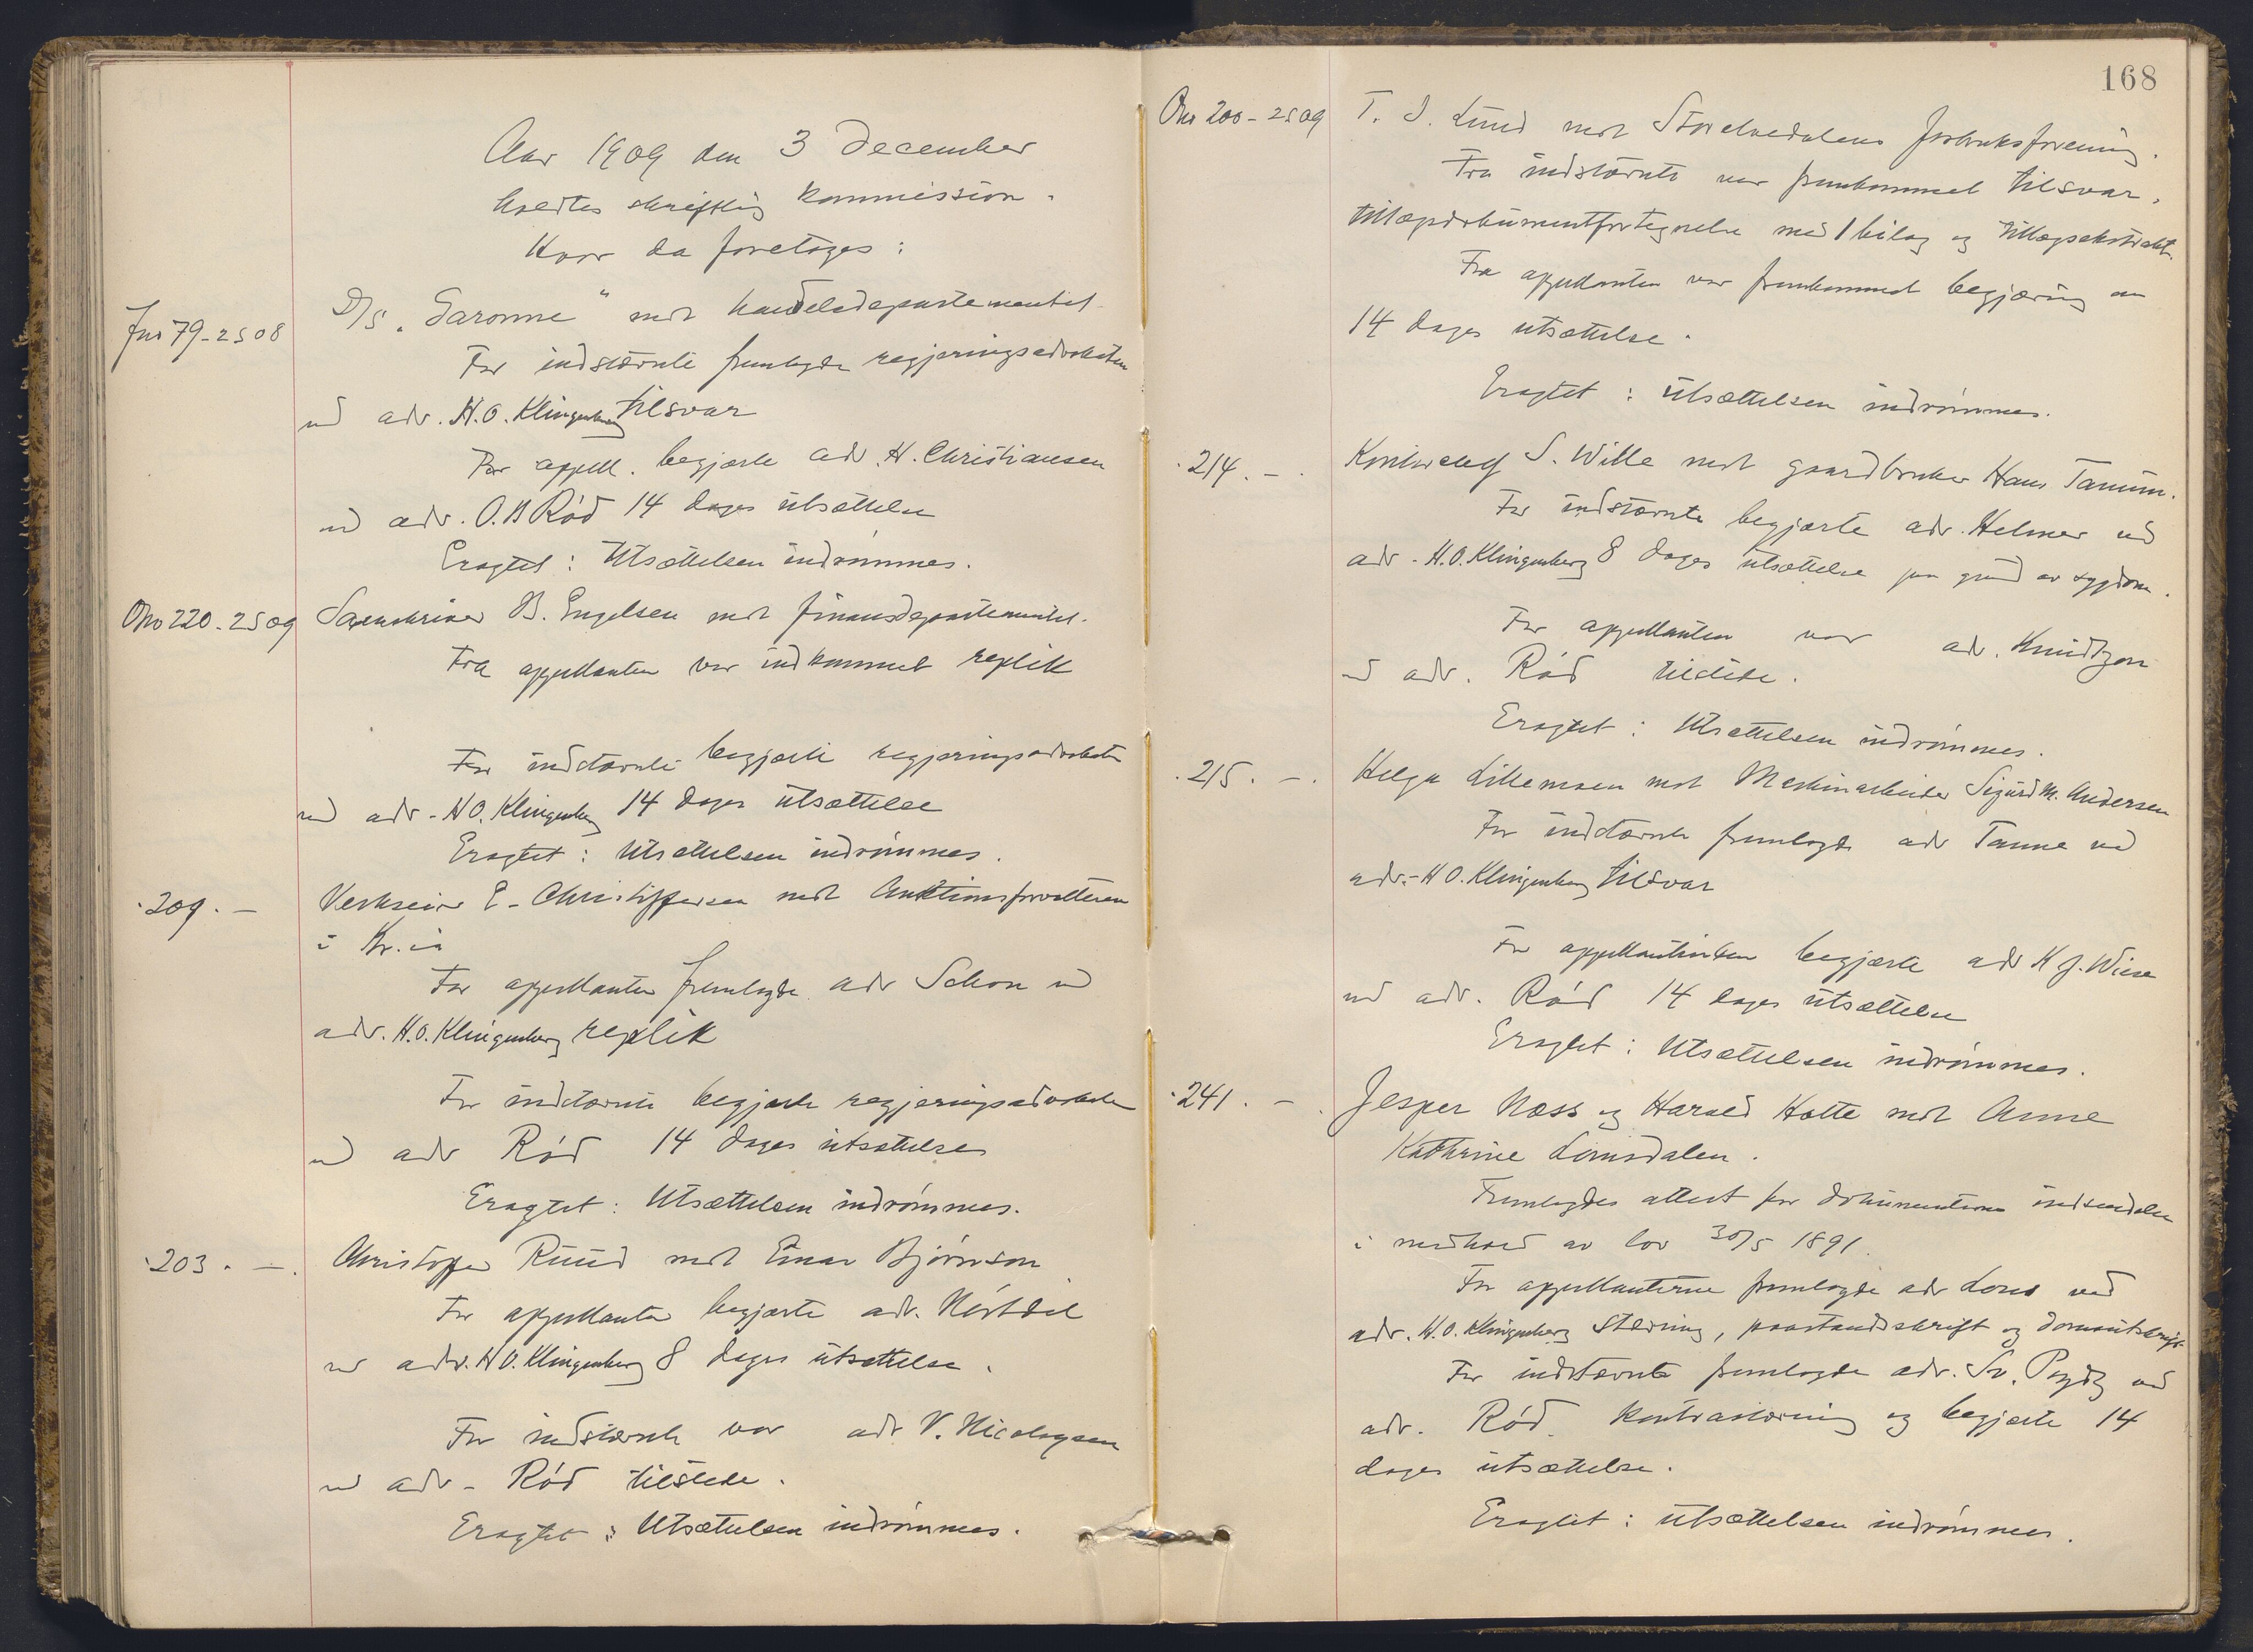 Aar 1909 den 3 December
holdtes skriftlig kommission.
Hvor da foretoges:
Jnr 79-2S08
D/S "Garonne" mot handelsdepartementet.
For indstævnte fremlagde regjeringsadvokaten
ved adv. H.O. Klingenberg tilsvar
For appell. begjærte adv. H. Christiansen
ved adv. O.B Röd 14 dages utsættelse
Eragtet: Utsættelsen indrømmes.
Onr 220-2S09
Sorenskriver B. Engelsen mot finansdepartementet.
Fra appellanten var indkommet replik
For indstævnte begjærte regjeringsadvokaten
ved adv. H O. Klingenberg 14 dages utsættelse
Eragtet: Utsættelsen indrömmes.
·209.—
Verkseier E. Christophersen mot Auktionsforvalteren
i Kr.ia
For appellanten fremlagde adv Schou ved
adv. H.O. Klingenberg replik
For indstævnte begjærte regjeringsadvokaten
ved adv Röd 14 dages utsættelse
Eragtet: Utsættelsen indrömmes.
·203.—.
Christoffer Ruud mot Einar Björnson
For appellanten begjærte adv.
ved adv. H O. Klingenberg 8 dages utsættelse.
For indstævnte var adv V. Nicolaysen
ved adv. Röd tilstede.
Eragtet: Utsættelsen indrömmes.
168
Onr 200-2S09
T. J. Lund mot Storelvedalens forbruksforening.
Fra indstævnte var fremkommet tilsvar,
tillægsdokumentfortegnelse med 1 bilag og tillægsekstrakt.
Fra appellanten var fremkommet begjæring om
14 dages utsættelse.
Eragtet: utsættelsen indrömmes.
·214.—
Kontorchef S. Wille mot gaardbruker Hans Tanum.
For indstævnte begjærte adv. Helmer ved
adv. H.O. Klingenberg 8 dages utsættelse paa grund av sygdom.
For appellanten var adv. Knudtzon
ved adv. Röd tilstede.
Eragtet: Utsættelsen indrömmes.
·215.—.
Helga Lillemoen mot Maskinarbeider Sigurd M. Andersen
For indstævnte fremlagde adv Tanne ved
adv. H O. Klingenberg tilsvar
For appellantinden begjærte adv K J. Wiese
ved adv. Röd 14 dages utsættelse
Eragtet: Utsættelsen indrömmes.
·241.—.
Jesper Næss og Harald Hatte mot Anne
Kathrine Lomsdalen.
Fremlagdes attest for dokumenternes indsendelse
i medhold av lov 30/5 1891.
For appellanterne fremlagde adv Lous ved
adv. H.O. Klingenberg stævning, paastandsskrift og domsutskrift.
For indstævnte fremlagde adv. Sv. ved
adv. Röd. kontrastævning og begjærte 14
dages utsættelse.
Eragtet: utsættelsen indrömmes.